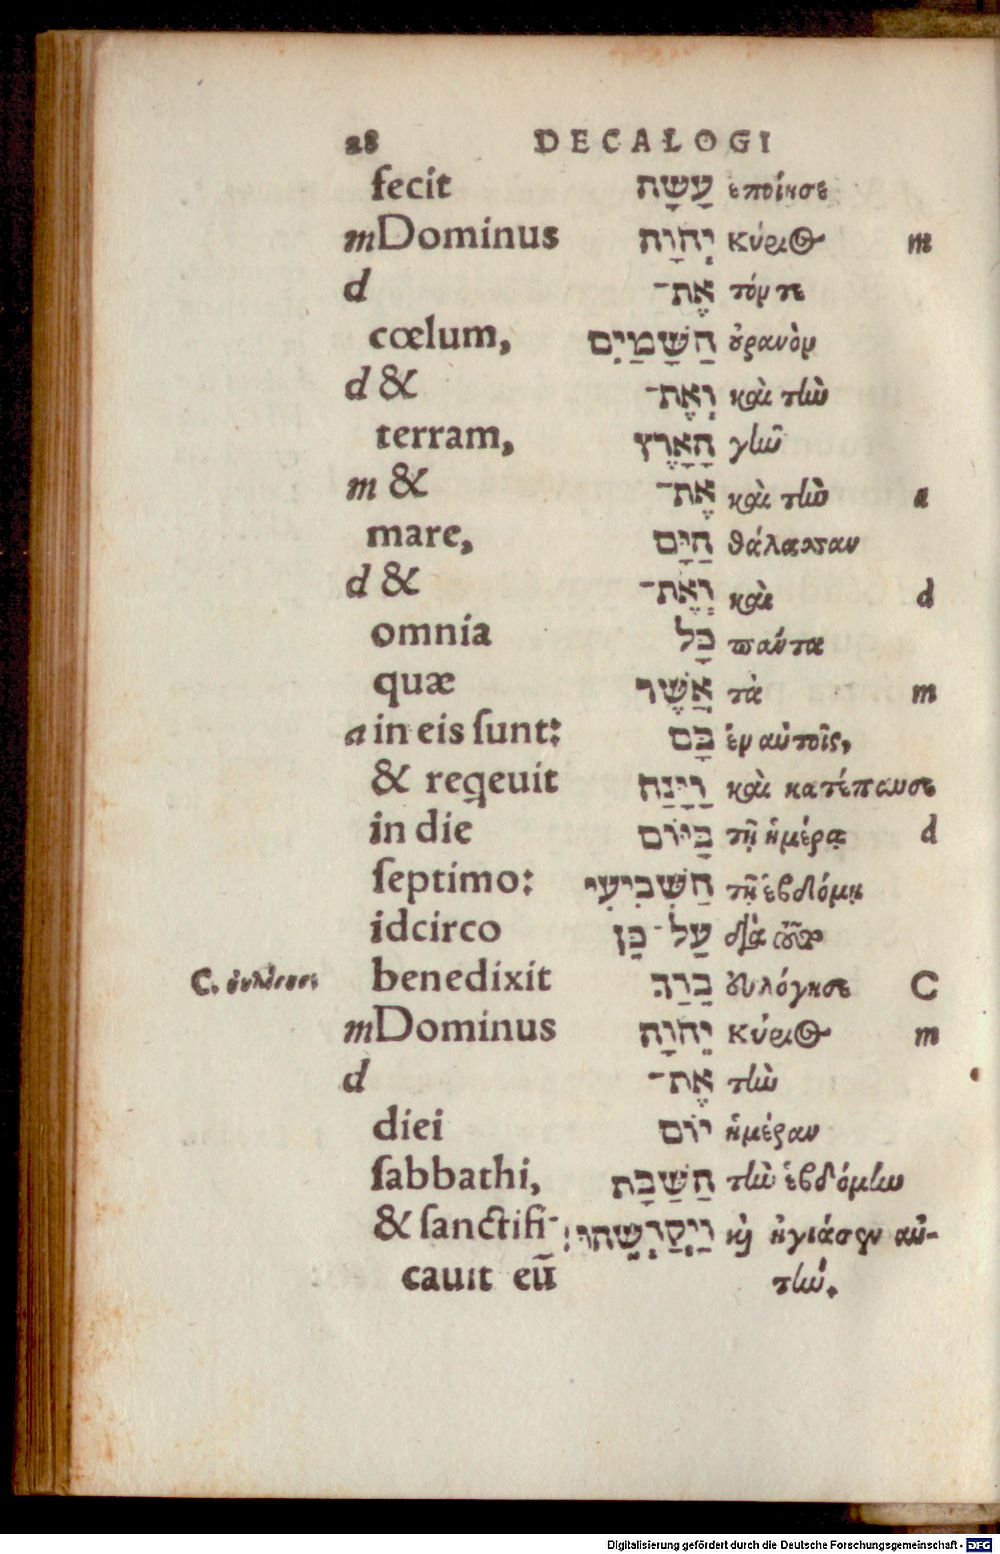 28 DECALOGI
fecit עָשָׂה ἐποίησε
m Dominus יְהוָֹה κύριος m
d אֶת־ τόν τε
cœlum, הַשָּׁמַיִם οὐρανὸν
d & וְאֶת־ καὶ τὴν
terram, הָאָרֶץ γῆν
m & אֶת־ καὶ τὴν a
mare, הַיָּם θάλατταν
d & וְאֶת־ καὶ d
omnia כָּל πάντα
quæ אֲשֶׁר τὰ m
a in eis ſunt: בָּם ἐν αὐτοῖς,
& reqeuit וַיָּנַח καὶ κατέπαυσε
in die בַּיּוֹם τῇ ἡμέρᾳ d
ſeptimo: הַשְּׁבִיעִי τῇ ἑβδόμῃ
idcirco עַל־כָּן διὰ τοῦτο
C. benedixit בֵּרַךְ εὐλόγησε C
m Dominus יְהוָֹה κύριος m
d אֶת־ τὴν
diei יוֹם ἡμέραν
ſabbathi, הַשַּׁבָּת τὴν ἑβδόμην
& ſanctifi- וַיְקַדְּשֵׁהוּ: καὶ ἡγίασεν αὐ-
cauit eū τήν.
Digitalisierung gefördert durch die Deutsche Forschungsgemeinschaft - DFG